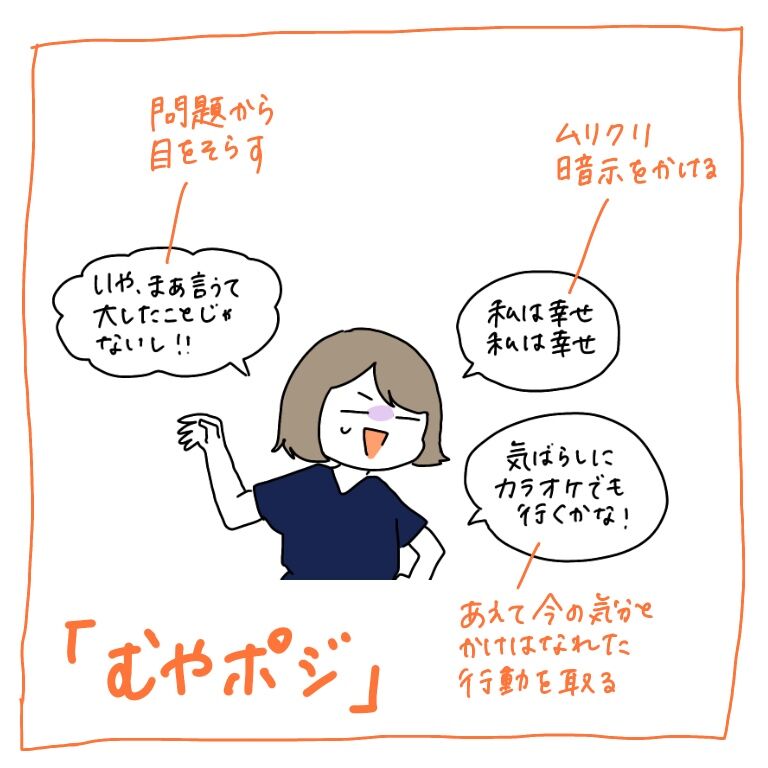 問題から
目をそらす
いや、まあ言うて
大したことじゃ
ないし!!
ムリクリ
暗示をかける
私は幸せ
私は幸せ
気ばらしに
カラオケでも
行くかな!
あえて今の気分と
かけはなれた
行動を取る
「むやポジ」